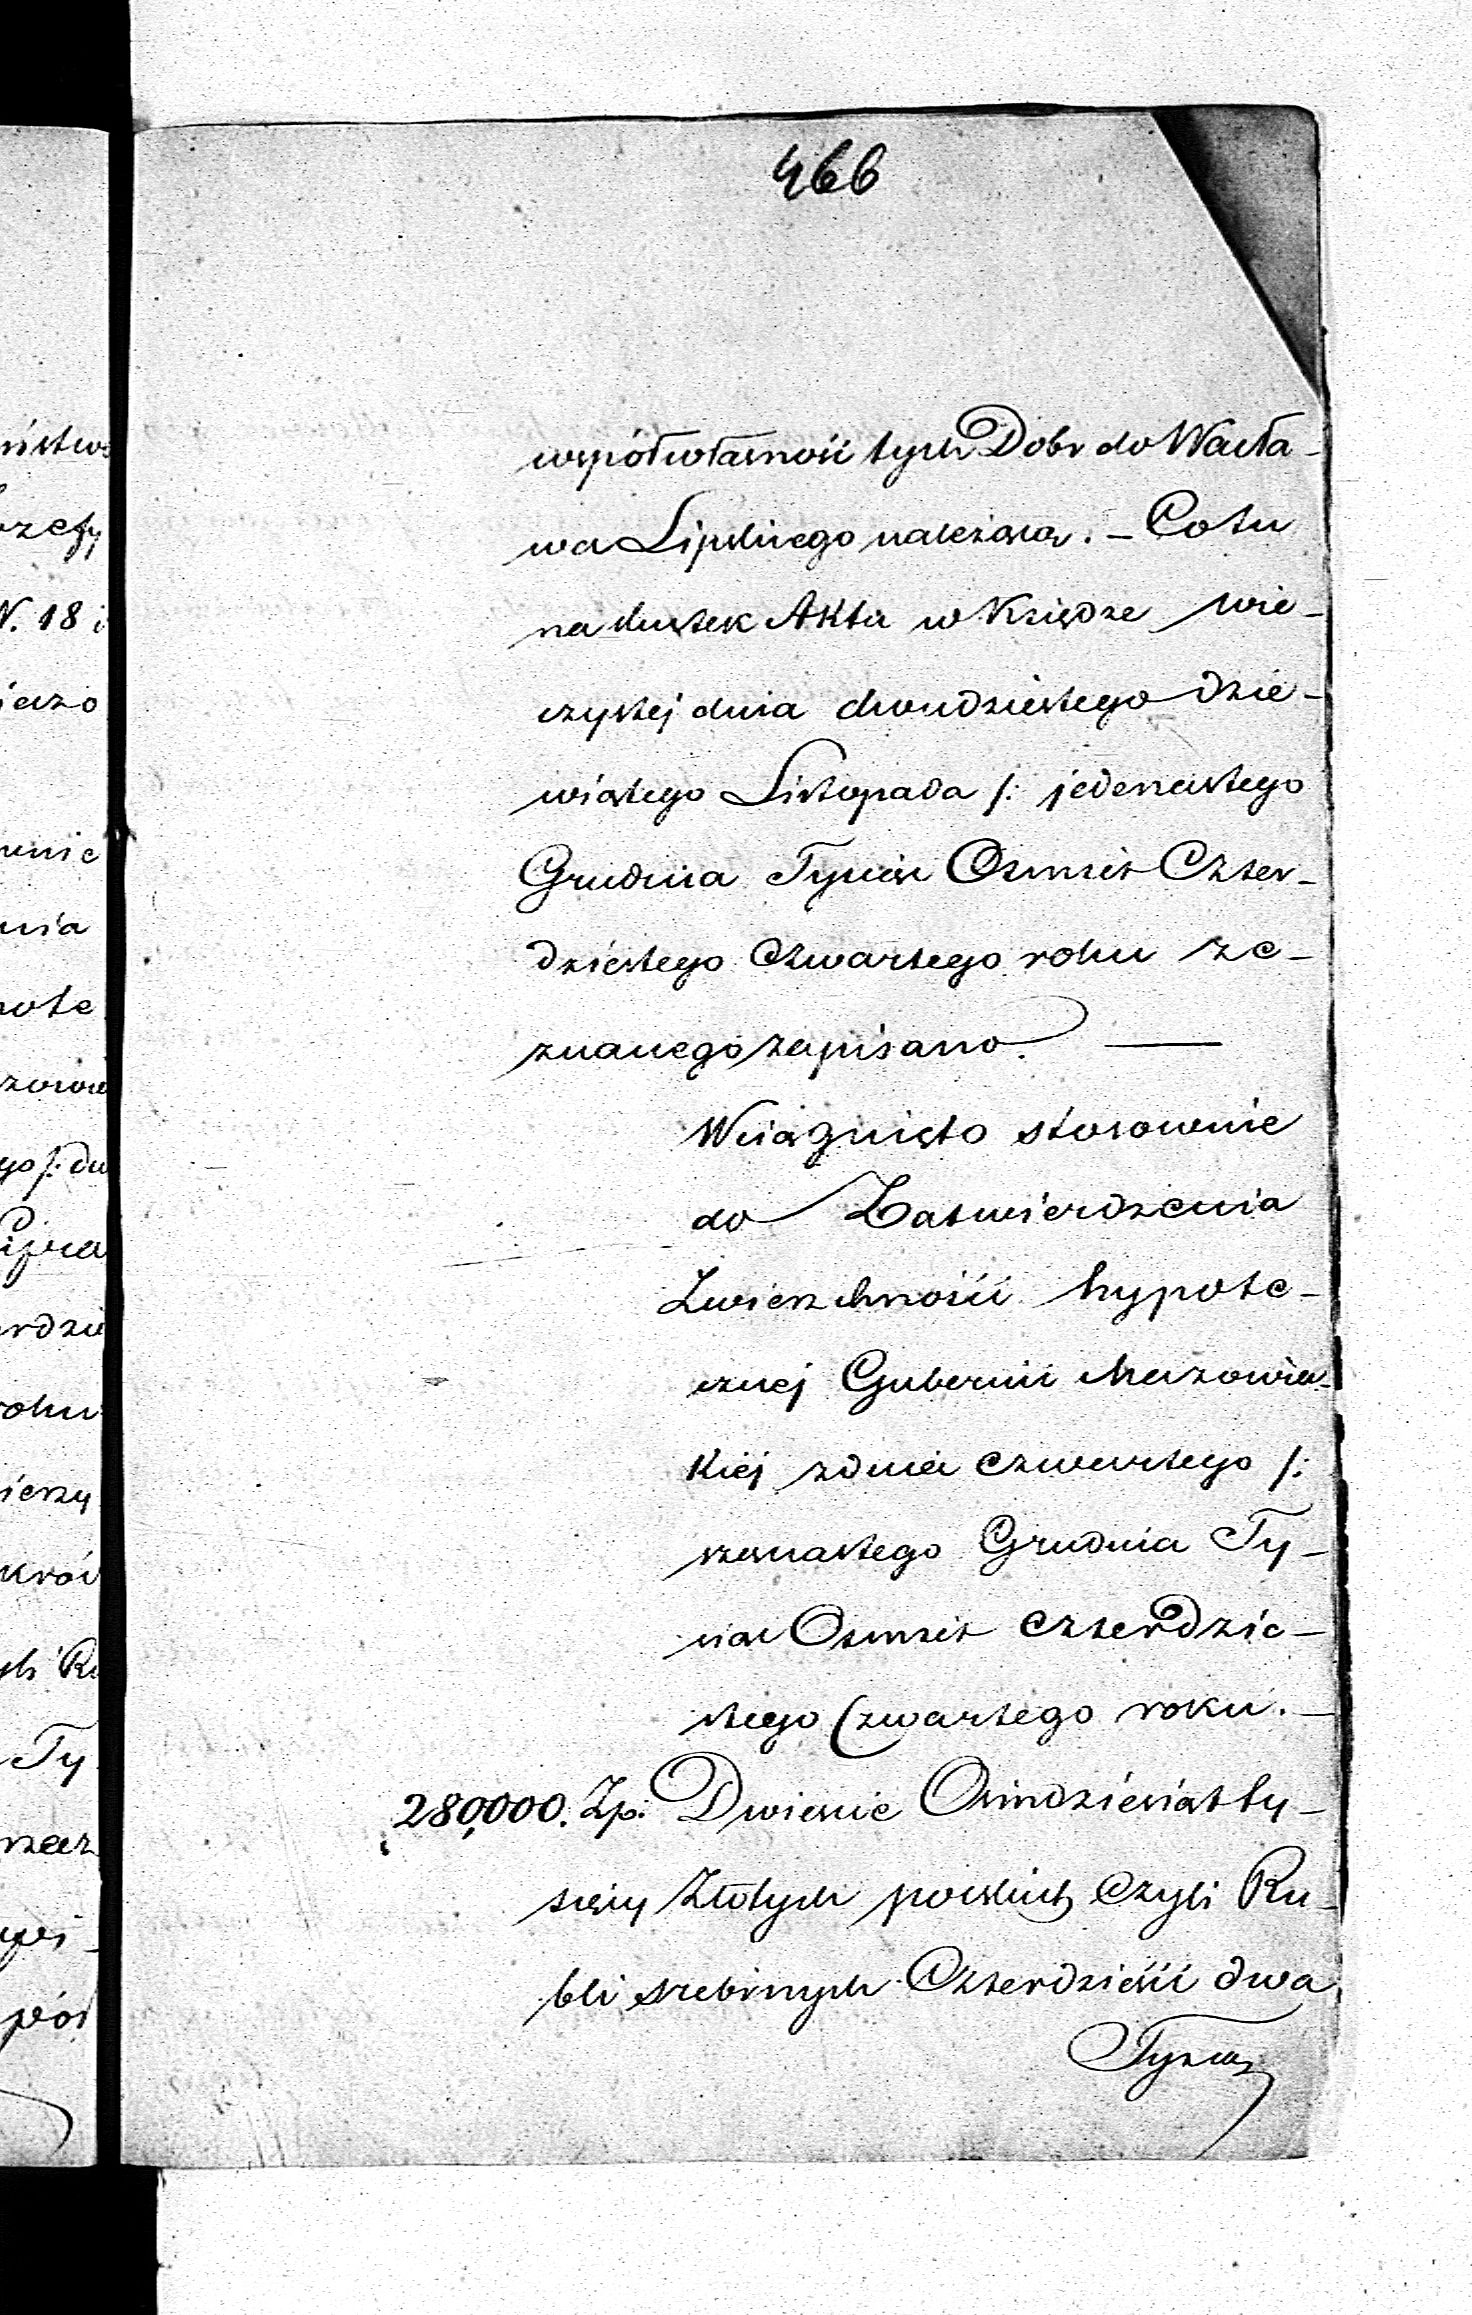 466
współwłasność tych Dobr do Wacła-
wa Lipskiego należąca. – Co tu
na skutek Aktu w Księdze wie-
czystej dnia dwudziestego dzie-
wiątego Listopada /: jedenastego
Grudnia Tysiąc Osmset Czter-
dziestego Czwartego roku ze-
znanego zapisano. —
Wciągnięto stosownie
do Zatwierdzenia
Zwierzchności hypote-
cznej Gubernii Mazowie-
ckiej z dnia czwartego /:
szesnastego Grudnia Ty-
siąc Osmset Czterdzie-
stego Czwartego roku. –
280,000. Zp: Dwieście Osmdziesiąt ty-
sięcy Złotych polskich czyli Ru-
bli srebrnych Czterdzieści dwa
Tysiące
N. 18 i
Ty